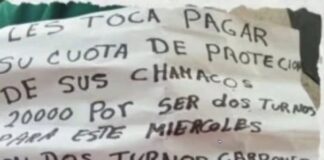 LES TOCA PAGAR
SU CUOTA DE PROTECION
DE SUS CHAMACOS
20000 POR SER DOS TURNOS
PARA ESTE MIERCOLES
DOS TURNOS